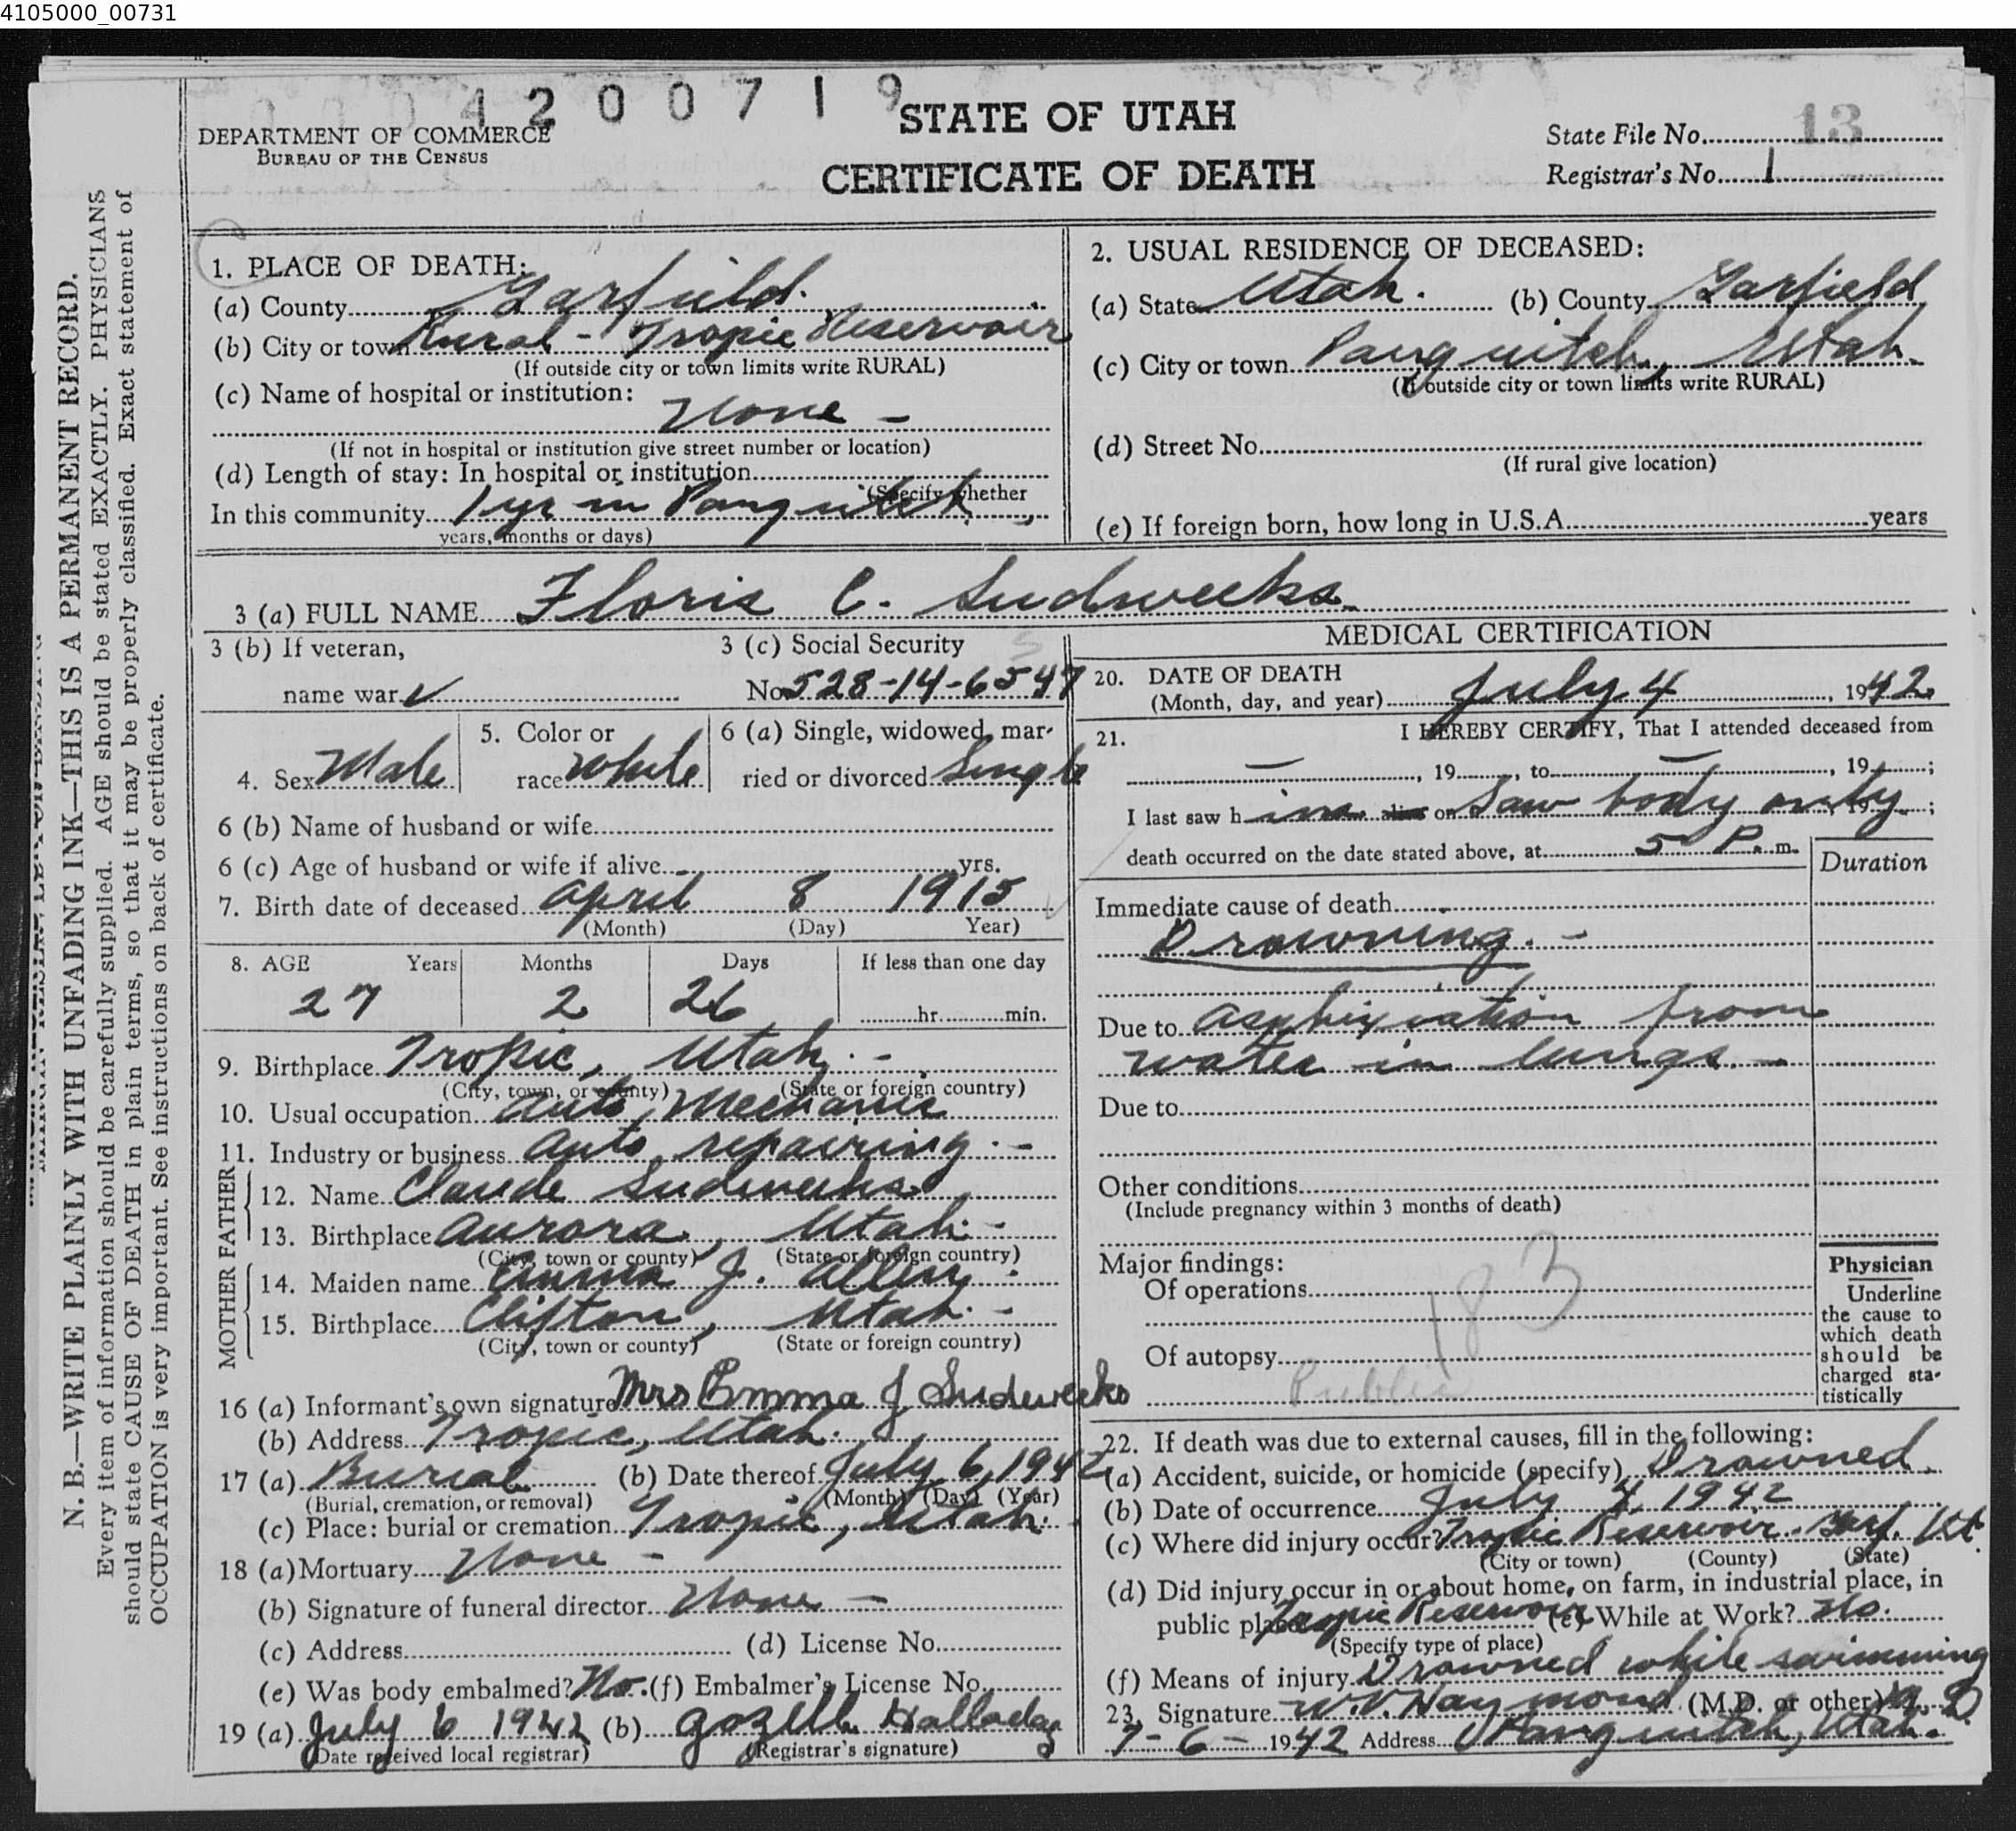 4105000_00731
0004200719
STATE OF UTAH
CERTIFICATE OF DEATH
DEPARTMENT OF COMMERCE
BUREAU OF THE CENSUS
State File No. 13
Registrar's No. 1
N. B.—WRITE PLAINLY WITH UNFADING INK—THIS IS A PERMANENT RECORD.
Every item of information should be carefully supplied. AGE should be stated EXACTLY. PHYSICIANS
should state CAUSE OF DEATH in plain terms, so that it may be properly classified. Exact statement of
OCCUPATION is very important. See instructions on back of certificate.
1. PLACE OF DEATH:
(a) County Garfield.
(b) City or town Rural - Tropic Reservoir
(If outside city or town limits write RURAL)
(c) Name of hospital or institution:
None -
(If not in hospital or institution give street number or location)
(d) Length of stay: In hospital or institution
(Specify whether
In this community 1 yr in Panguitch,
years, months or days)
2. USUAL RESIDENCE OF DECEASED:
(a) State Utah. (b) County Garfield
(c) City or town Panguitch, Utah.
(If outside city or town limits write RURAL)
(d) Street No.
(If rural give location)
(e) If foreign born, how long in U.S.A. years
3 (a) FULL NAME Floris C. Sudweeks
3 (b) If veteran,
name war ✓
3 (c) Social Security
No. 528-14-6547
4. Sex Male
5. Color or
race White
6 (a) Single, widowed, mar-
ried or divorced Single
6 (b) Name of husband or wife
6 (c) Age of husband or wife if alive yrs.
7. Birth date of deceased April 8 1915
(Month) (Day) Year)
8. AGE Years Months Days If less than one day
27 2 26 hr. min.
9. Birthplace Tropic, Utah. -
(City, town, or county) (State or foreign country)
10. Usual occupation Auto Mechanic
11. Industry or business Auto repairing. -
FATHER
12. Name Claude Sudweeks
13. Birthplace Aurora, Utah. -
(City, town or county) (State or foreign country)
MOTHER
14. Maiden name Emma J. Allen -
15. Birthplace Clifton, Utah. -
(City, town or county) (State or foreign country)
16 (a) Informant's own signature Mrs Emma J Sudweeks
(b) Address Tropic, Utah.
17 (a) Burial (b) Date thereof July 6, 1942
(Burial, cremation, or removal) (Month) (Day) (Year)
(c) Place: burial or cremation Tropic, Utah.
18 (a) Mortuary None -
(b) Signature of funeral director None -
(c) Address (d) License No.
(e) Was body embalmed? No. (f) Embalmer's License No.
19 (a) July 6 1942 (b) Gozell Halladay
(Date received local registrar) (Registrar's signature)
MEDICAL CERTIFICATION
20. DATE OF DEATH
(Month, day, and year) July 4, 1942
21. I HEREBY CERTIFY, That I attended deceased from
—, 19, to —, 19;
I last saw him alive on Saw body only, 19;
death occurred on the date stated above, at 5 P. m.
Duration
Immediate cause of death
Drowning. -
Due to asphixiation from
water in lungs. -
Due to
Other conditions
(Include pregnancy within 3 months of death)
Major findings:
Of operations
183
Of autopsy
Public
Physician
Underline
the cause to
which death
should be
charged sta-
tistically
22. If death was due to external causes, fill in the following:
(a) Accident, suicide, or homicide (specify) Drowned
(b) Date of occurrence July 4, 1942
(c) Where did injury occur? Tropic Reservoir. Garf. Ut.
(City or town) (County) (State)
(d) Did injury occur in or about home, on farm, in industrial place, in
public place? Tropic Reservoir (e) While at Work? No.
(Specify type of place)
(f) Means of injury Drowned while swimming
23. Signature W.V. Haymond (M.D. or other) M.D.
7-6-1942 Address Panguitch, Utah.